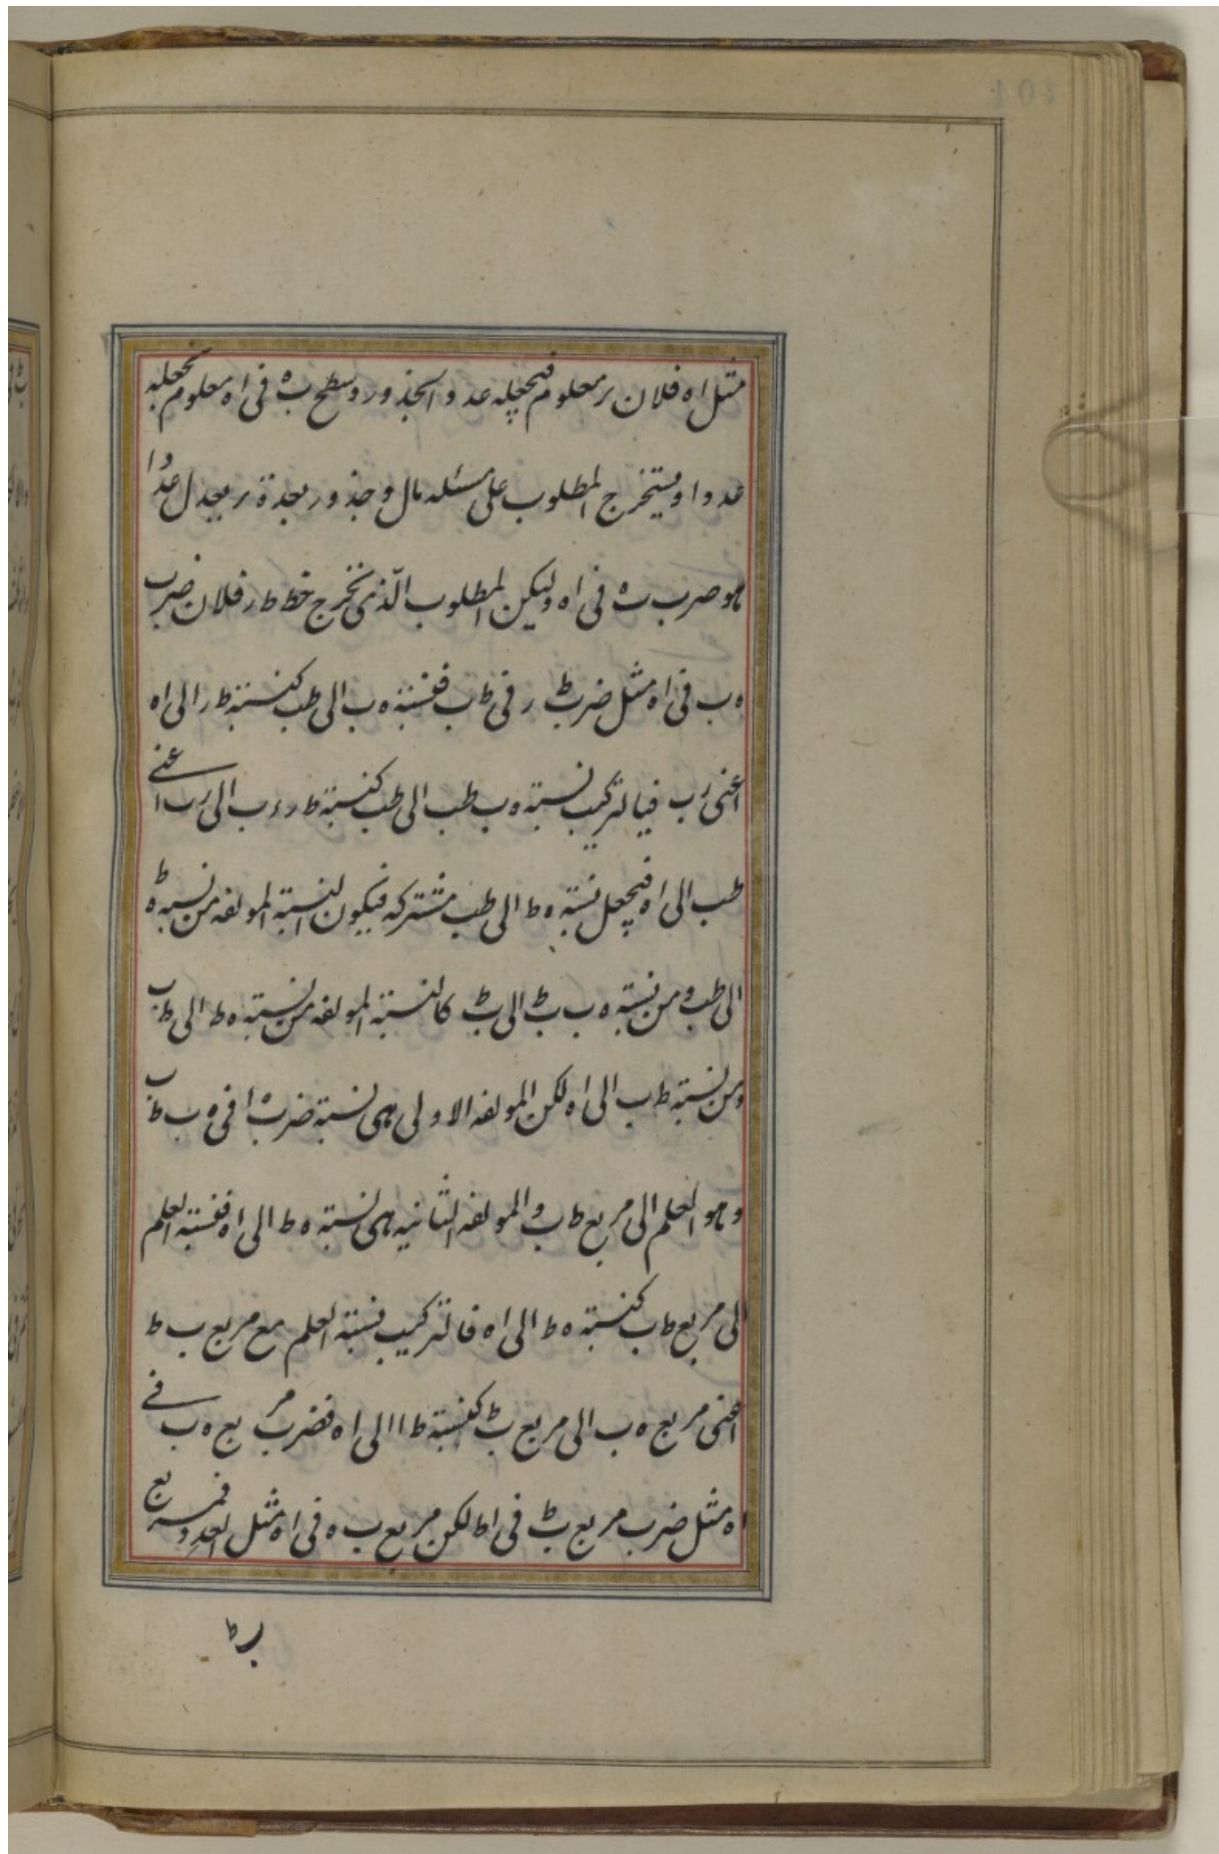 مثل اه فلان ر معلوم فنجعله عدد الجذور وسطح ب ه فى اه معلوم نجعله
عددا ويستخرج المطلوب على مسئله مال وجذور بعدة ر يعدل عددا
ما هو ضرب ب ه فى اه وليكن المطلوب الذى نخرج خط ط ر فلان ضرب
ه ب فى اه مثل ضرب ط ر فى ط ب فنسبة ه ب الى طب كنسبة ط ر الى اه
اعنى ر ب فبالتركيب نسبة ه ب طب الى طب كنسبة ط ر ر ب الى ر ب اعنى
طب الى اه فنجعل نسبة ه ط الى طب مشتركه فيكون النسبة المولفه من نسبة ه ط
الى طب ومن نسبة ه ب بط الى بط كالنسبة المولفه من نسبة ه ط الى ط ب
ومن نسبة ط ب الى اه لكن المولفه الاولى هى نسبة ضرب ه ط فى ه ب ط ب
وهو العلم الى مربع ط ب والمولفه الثانيه هى نسبة ه ط الى اه فنسبة العلم
الى مربع ط ب كنسبة ه ط الى اه فالتركيب فنسبة العلم مع مربع ب ط
اعنى مربع ه ب الى مربع بط كنسبة ط ا الى اه فضرب مربع ه ب فى
اه مثل ضرب مربع بط فى اط لكن مربع ب ه فى اه مثل العدد فمربع
ب ط